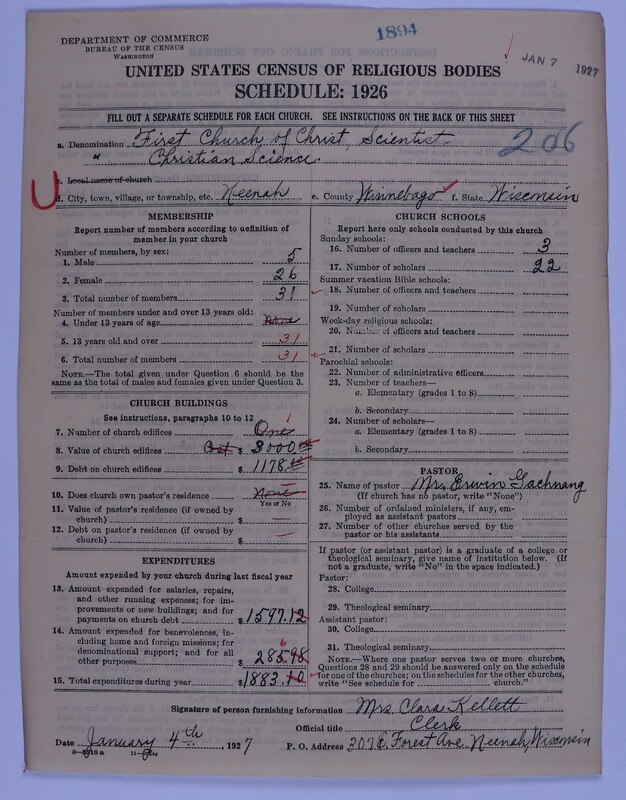 DEPARTMENT OF COMMERCE
BUREAU OF THE CENSUS
WASHINGTON
1894
JAN 7 1927
UNITED STATES CENSUS OF RELIGIOUS BODIES
SCHEDULE: 1926
FILL OUT A SEPARATE SCHEDULE FOR EACH CHURCH. SEE INSTRUCTIONS ON THE BACK OF THIS SHEET
a. Denomination First Church of Christ, Scientist
206
" Christian Science.
c. Local name of church
d. City, town, village, or township, etc. Neenah e. County Winnebago f. State Wisconsin
MEMBERSHIP
Report number of members according to definition of
member in your church
Number of members, by sex:
1. Male 5
2. Female 26
3. Total number of members 31
Number of members under and over 13 years old:
4. Under 13 years of age None
5. 13 years old and over 31
6. Total number of members 31
NOTE.—The total given under Question 6 should be
same as the total of males and females given under Question 3.
CHURCH BUILDINGS
See instructions, paragraphs 10 to 12
7. Number of church edifices One 1
8. Value of church edifices Cost $ 3000
9. Debt on church edifices $ 1178
10. Does church own pastor's residence None
Yes or No
11. Value of pastor's residence (if owned by
church) $
12. Debt on pastor's residence (if owned by
church) $
EXPENDITURES
Amount expended by your church during last fiscal year
13. Amount expended for salaries, repairs,
and other running expenses; for im-
provements or new buildings; and for
payments on church debt $ 1597.12
14. Amount expended for benevolences, in-
cluding home and foreign missions; for
denominational support; and for all
other purposes $ 285.98 6
15. Total expenditures during year $ 1883.10
CHURCH SCHOOLS
Report here only schools conducted by this church
Sunday schools:
16. Number of officers and teachers 3
17. Number of scholars 22
Summer vacation Bible schools:
18. Number of officers and teachers
19. Number of scholars
Week-day religious schools:
20. Number of officers and teachers
21. Number of scholars
Parochial schools:
22. Number of administrative officers
23. Number of teachers—
a. Elementary (grades 1 to 8)
b. Secondary
24. Number of scholars—
a. Elementary (grades 1 to 8)
b. Secondary
PASTOR
25. Name of pastor Mr. Erwin Gachnang
(If church has no pastor, write "None")
26. Number of ordained ministers, if any, em-
ployed as assistant pastors
27. Number of other churches served by the
pastor or his assistants
If pastor (or assistant pastor) is a graduate of a college or
theological seminary, give name of institution below. (If
not a graduate, write "No" in the space indicated.)
Pastor:
28. College
29. Theological seminary
Assistant pastor:
30. College
31. Theological seminary
NOTE.—Where one pastor serves two or more churches,
Questions 28 and 29 should be answered only on the schedule
for one of the churches; on the schedules for the other churches,
write "See schedule for church."
Signature of person furnishing information Mrs. Clara Kellett
Official title Clerk
Date January 4th, 1927 P. O. Address 307 E. Forest Ave. Neenah, Wisconsin